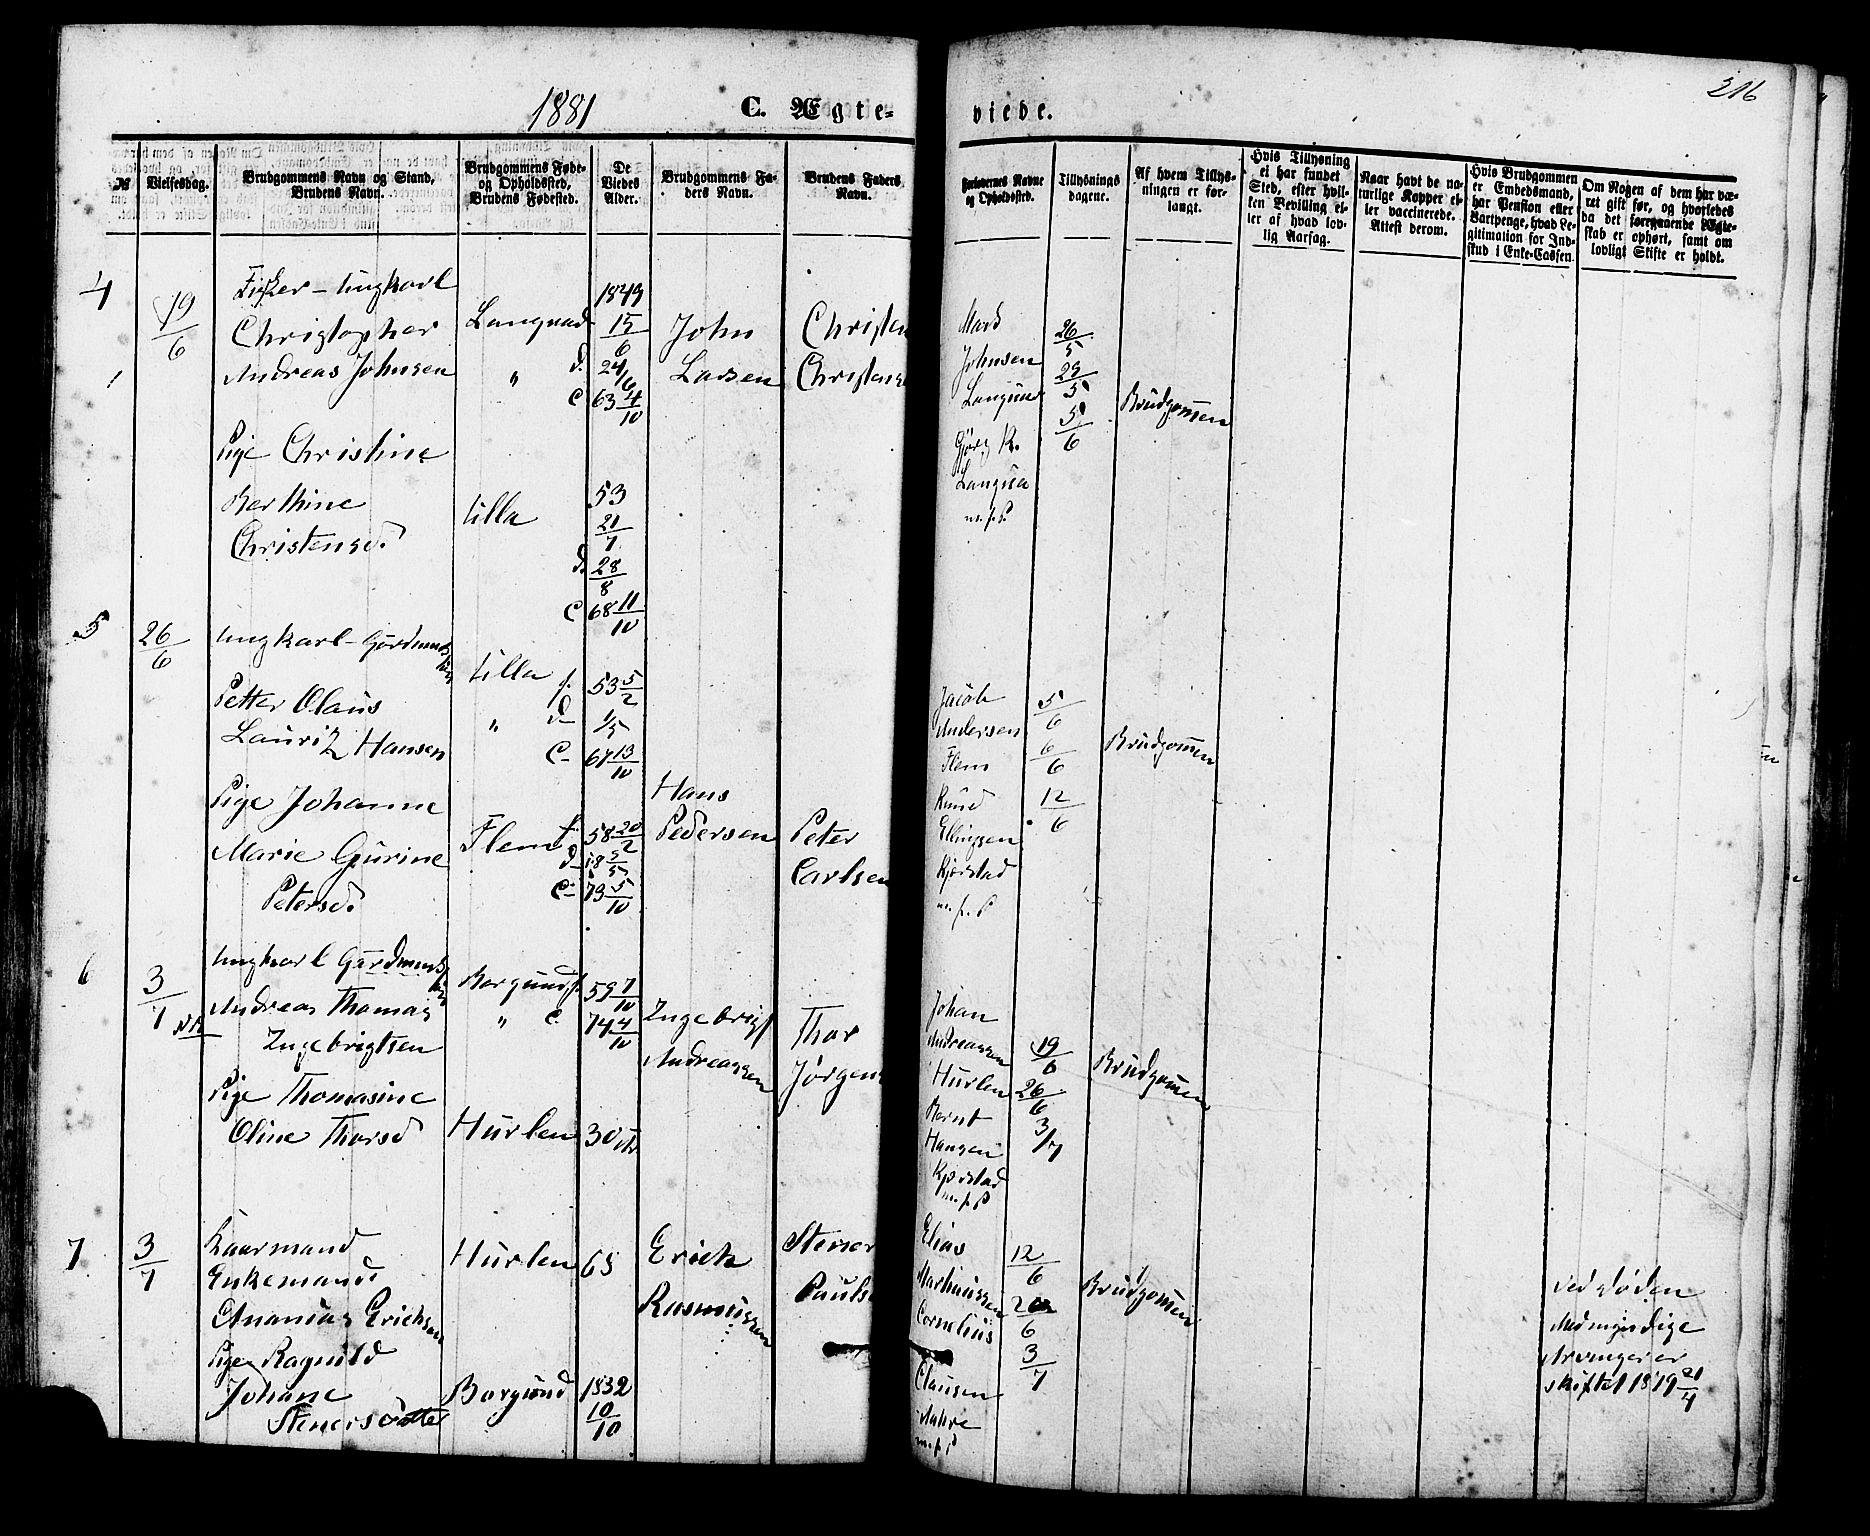 1881
C. Ægte-
viede.
216
№
Vielsesdag.
Brudgommens Navn og Stand,
Brudens Navn.
Brudgommens Føde-
og Opholdssted,
Brudens Fødested.
De
Viedes
Alder.
Brudgommens Fa-
ders Navn.
Brudens Faders
Navn.
Forlovernes Navne
og Opholdssted.
Tillysnings
dagene.
Af hvem Tillys-
ningen er for-
langt.
Hvis Tillysning
ei har fundet
Sted, efter hvil-
ken Bevilling el-
ler af hvad lov-
lig Aarsag.
Naar havt de na-
turlige Kopper el-
ler vaccinerede.
Attest derom.
Hvis Brudgommen
er Embedsmand,
har Pension eller
Vartpenge, hvad Le-
gitimation for Ind-
skud i Enke-Cassen.
Om Nogen af dem har væ-
ret gift før, og hvorledes
da det foregaaende Ægte-
skab er ophørt, samt om
lovligt Skifte er holdt.
4
19/6
Fisker - Ungkarl
Christopher
Andreas Johnsen
Pige Christine
Berthine
Christensd.
Langvad
"
Ulla
1849
15/6
d. 24/6
C 63 4/10
53
21/7
d. 28/8
C 68 11/10
John
Larsen
Christen
Christens
Johnsen
Langva
m.f.P.
26/5
29/5
5/6
Brudgommen
5
26/6
Ungkarl - Gaardmands
Petter Olaus
Lauritz Hansen
Pige Johanne
Marie Gurine
Petersd.
Ulla
"
Flem
f. 53 5/2
d. 1/5
C 67 13/10
f. 58 20/2
d. 18 5/5
C 73 5/10
Hans
Pedersen
Peter
Carlsen
Jacob
Andersen
Flem
Knud
Ellingsen
Kjerstad
m.f.P
5/6
6/6
12/6
Brudgommen
6
3/7
Ungkarl Gaardmands
Andreas Thomas
Ingebrigtsen
Pige Thomasine
Oline Thorsd
Borgund
"
Hurlen
f. 59 7/10
C 74 4/10
30
Ingebrigt
Andreassen
Thor
Jørgens
Johan
Andreassen
Hurlen
Bernt
Hansen
Kjerstad
m.f.P
19/6
26/6
3/7
Brudgommen
7
3/7
Kaarmand
Enkemand
Ananias Erichsen
Pige Ragnild
Johane
Stenersdatter
Hurlen
Borgund
65
1832
10/10
Erich
Rasmussen
Stener
Pauls
Elias
Martinussen
Cornelius
Clausen
m.f.P
12/6
3/7
Brudgommen
ved Døden
Med myndige
Arvinger er
skiftet 1879 21/4